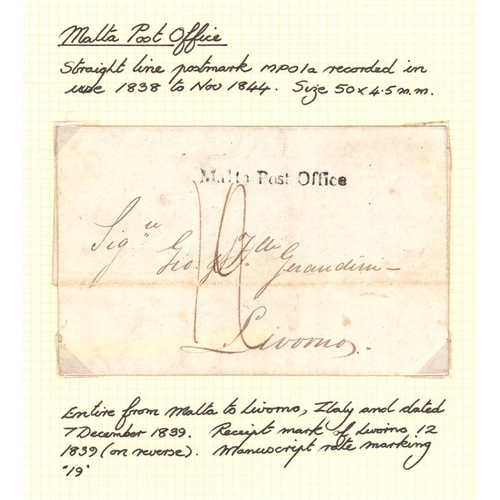 Malta Post Office
Straight line postmark MPO1a recorded in
use 1838 to Nov 1844. Size 50 x 4.5 m.m.
Malta Post Office
Sig.
19
Gerandini
Livorno
Entire from Malta to Livorno, Italy and dated
7 December 1839. Receipt mark of Livorno 12
1839 (on reverse). Manuscript rate marking
"19"